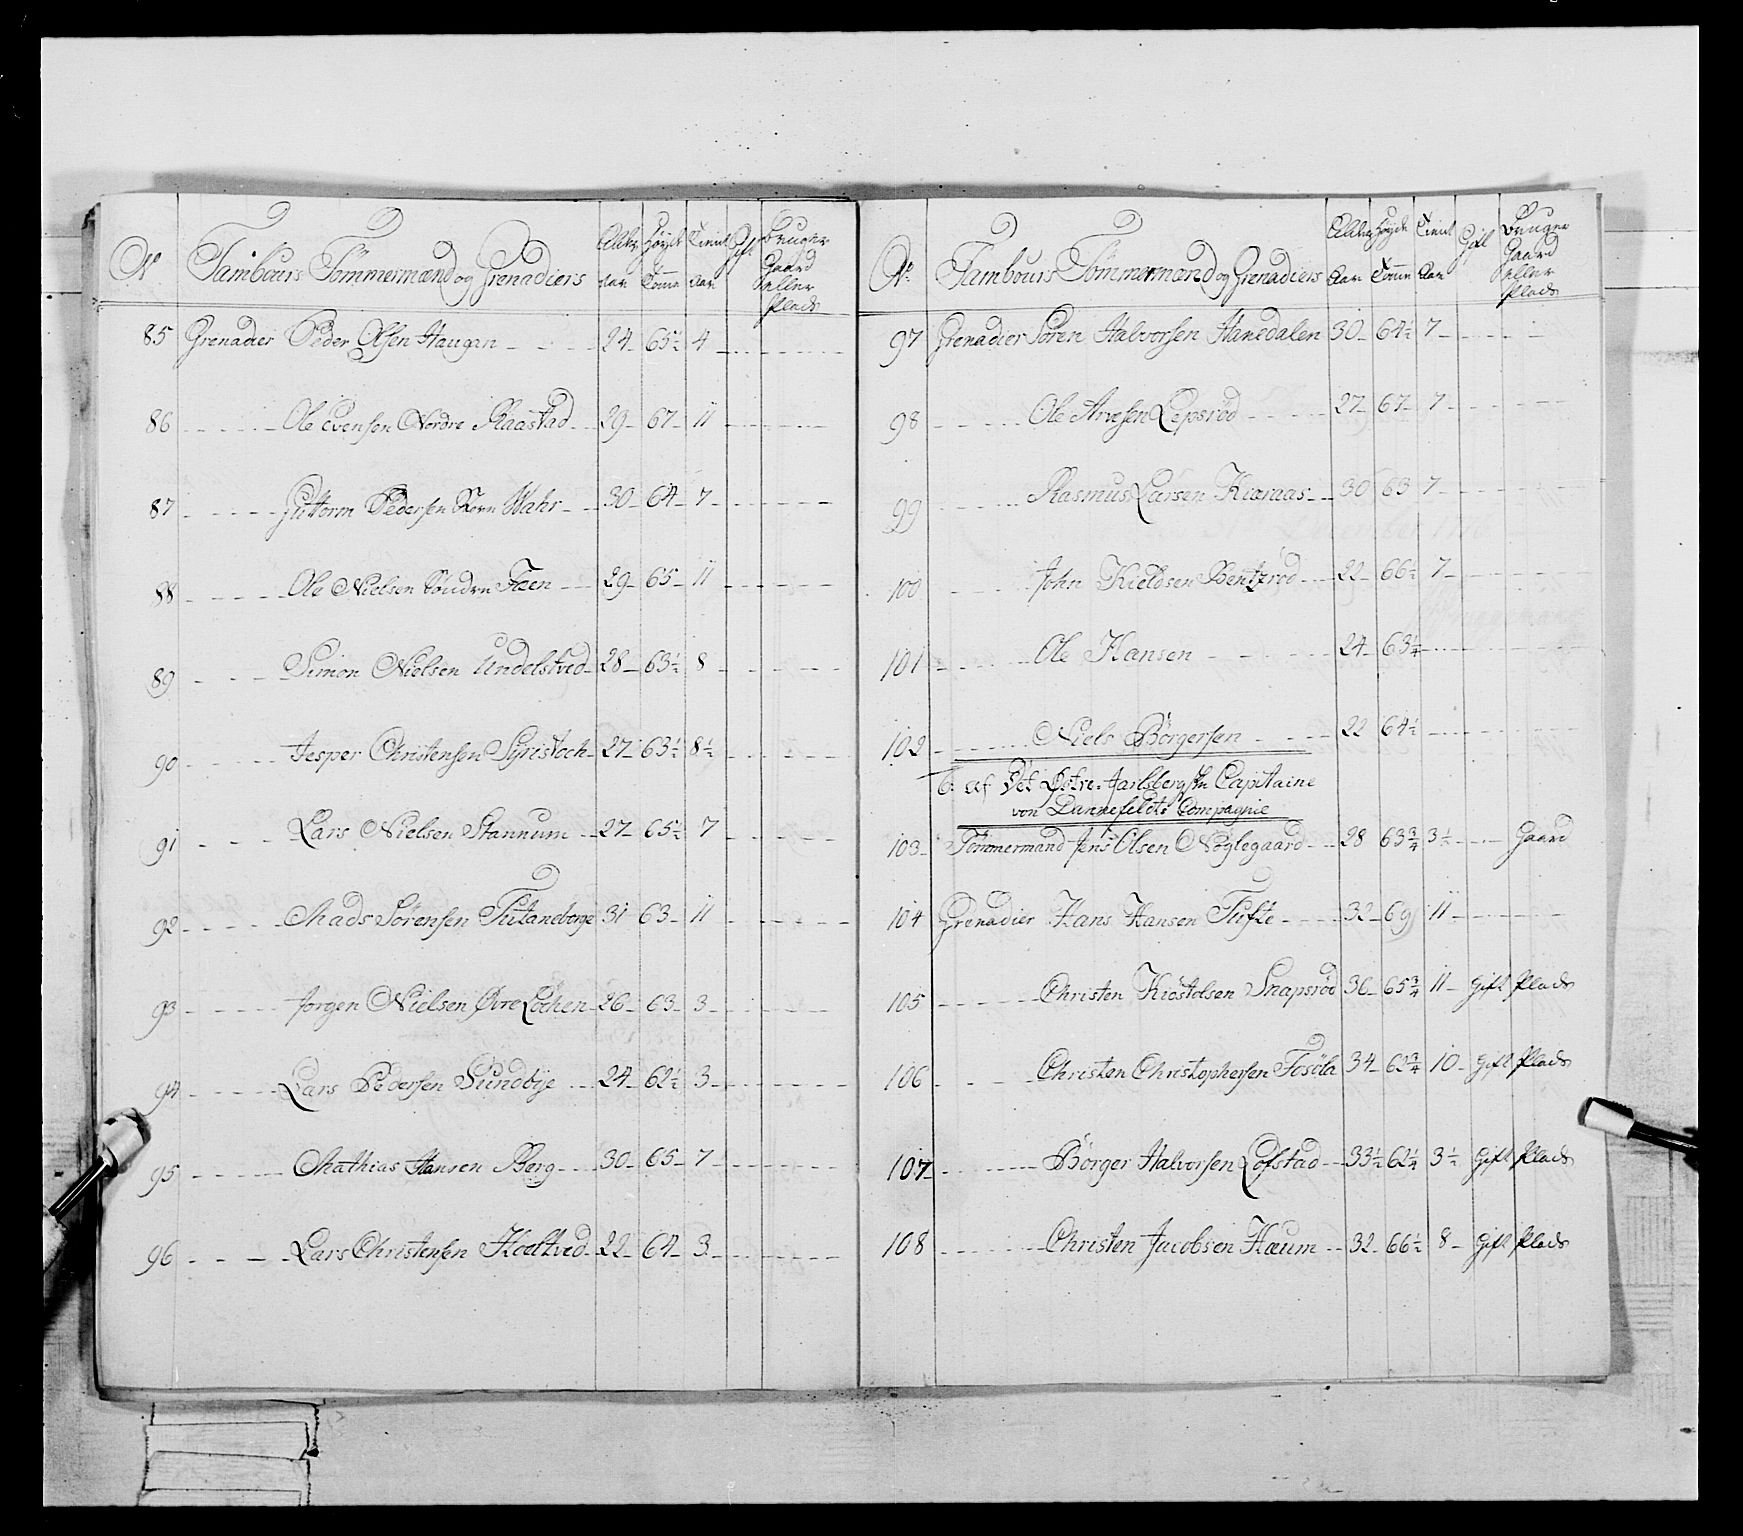 No Tambours Tömmermænd og Grenadiers Alder Aar Höyde Tomme Tient Aar Gift Bruger Gaard eller Plads
85 Grenadier Peder Olsen Haugen 24 65½ 4
86 Ole Evensen Nordre Raastad 29 67 11
87 Guttorm Pedersen Wahr 30 64 7
88 Ole Nielsen Söndre Foen 29 65 11
89 Simon Nielsen Undelstved 28 63½ 8
90 Jesper Christensen Syristoch 27 63½ 8½
91 Lars Nielsen Stannum 27 65½ 7
92 Mads Sörensen Tutaneborge 31 63 11
93 Jorgen Nielsen Øvre Löchen 26 63 3
94 Lars Pedersen Sundbye 24 62½ 3
95 Mathias Hansen Berg 30 65 7
96 Lars Christensen Holtved 22 64 3
No Tambours Tömmermænd og Grenadiers Alder Aar Höyde Tomme Tient Aar Gift Bruger Gaard eller Plads
97 Grenadier Sören Halvorsen Hanedalen 30 64½ 7
98 Ole Arvesen Lepsröd 27 67 7
99 Rasmus Larsen Kiæraas 30 63 7
100 John Kieldsen Bentzröd 22 66½ 7
101 Ole Hansen 24 63¼
102 Niels Börgersen 22 64½
6: af Det Østre Jarlsbergske Capitaine
von Dannefeldts Compagnie
103 Tömmermand Jens Olsen Nöglegaard 28 63¾ 3½ Gaard
104 Grenadier Hans Hansen Tufte 32 69 11
105 Christen Kiöstolsen Snapsröd 36 65¾ 11 Gift Plads
106 Christen Christophersen Fosöla 34 62¾ 10 Gift Plads
107 Börger Halvorsen Lofstad 33½ 62¼ 3½ Gift Plads
108 Christen Jacobsen Haum 32 66½ 8 Gift Plads